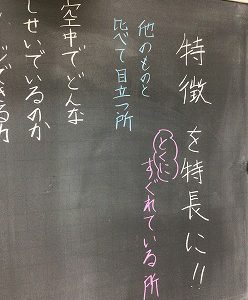 特徴を特長に!!
とくにすぐれている所
他のものと
比べて目立つ所
空中でどんな
しせいでいるのか